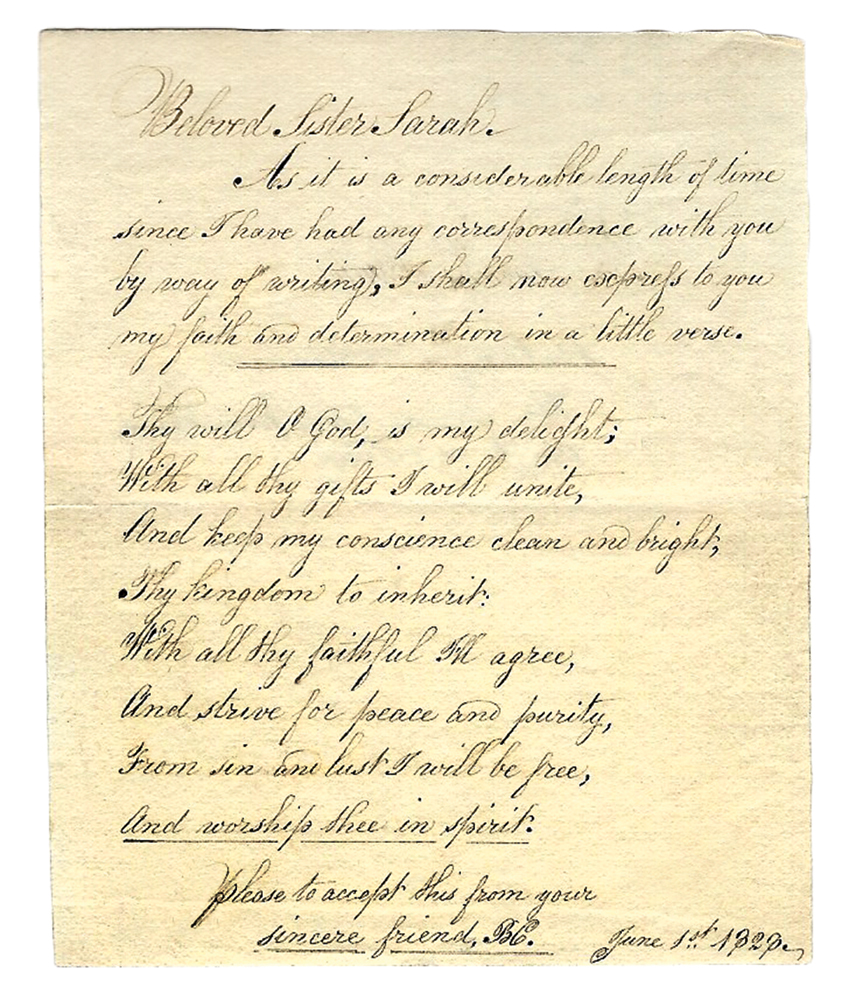 Beloved Sister Sarah.
As it is a considerable length of time
since I have had any correspondence with you
by way of writing, I shall now express to you
my faith and determination in a little verse.
Thy will O God, is my delight;
With all thy gifts I will unite,
And keep my conscience clean and bright,
Thy kingdom to inherit:
With all thy faithful I'll agree,
And strive for peace and purity,
From sin and lust I will be free,
And worship thee in spirit.
Please to accept this from your
sincere friend, BC.
June 1st